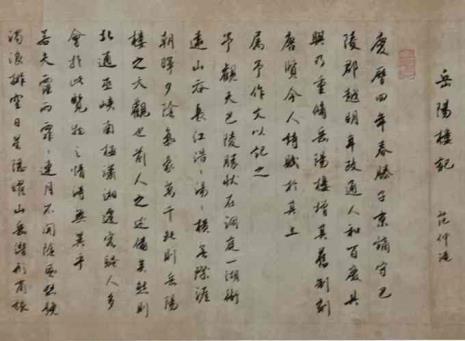 岳陽樓記 范仲淹
慶曆四年春滕子京謫守巴
陵郡越明年政通人和百廢具
興乃重修岳陽樓增其舊制刻
唐賢今人詩賦於其上
屬予作文以記之
予觀夫巴陵勝狀在洞庭一湖銜
遠山吞長江浩〻湯〻橫無際涯
朝暉夕陰氣象萬千此則岳陽
樓之大觀也前人之述備矣然則
北通巫峽南極瀟湘遷客騷人多
會於此覽物之情得無異乎
若夫霪雨霏〻連月不開陰風怒號
濁浪排空日星隱曜山岳潛形商旅